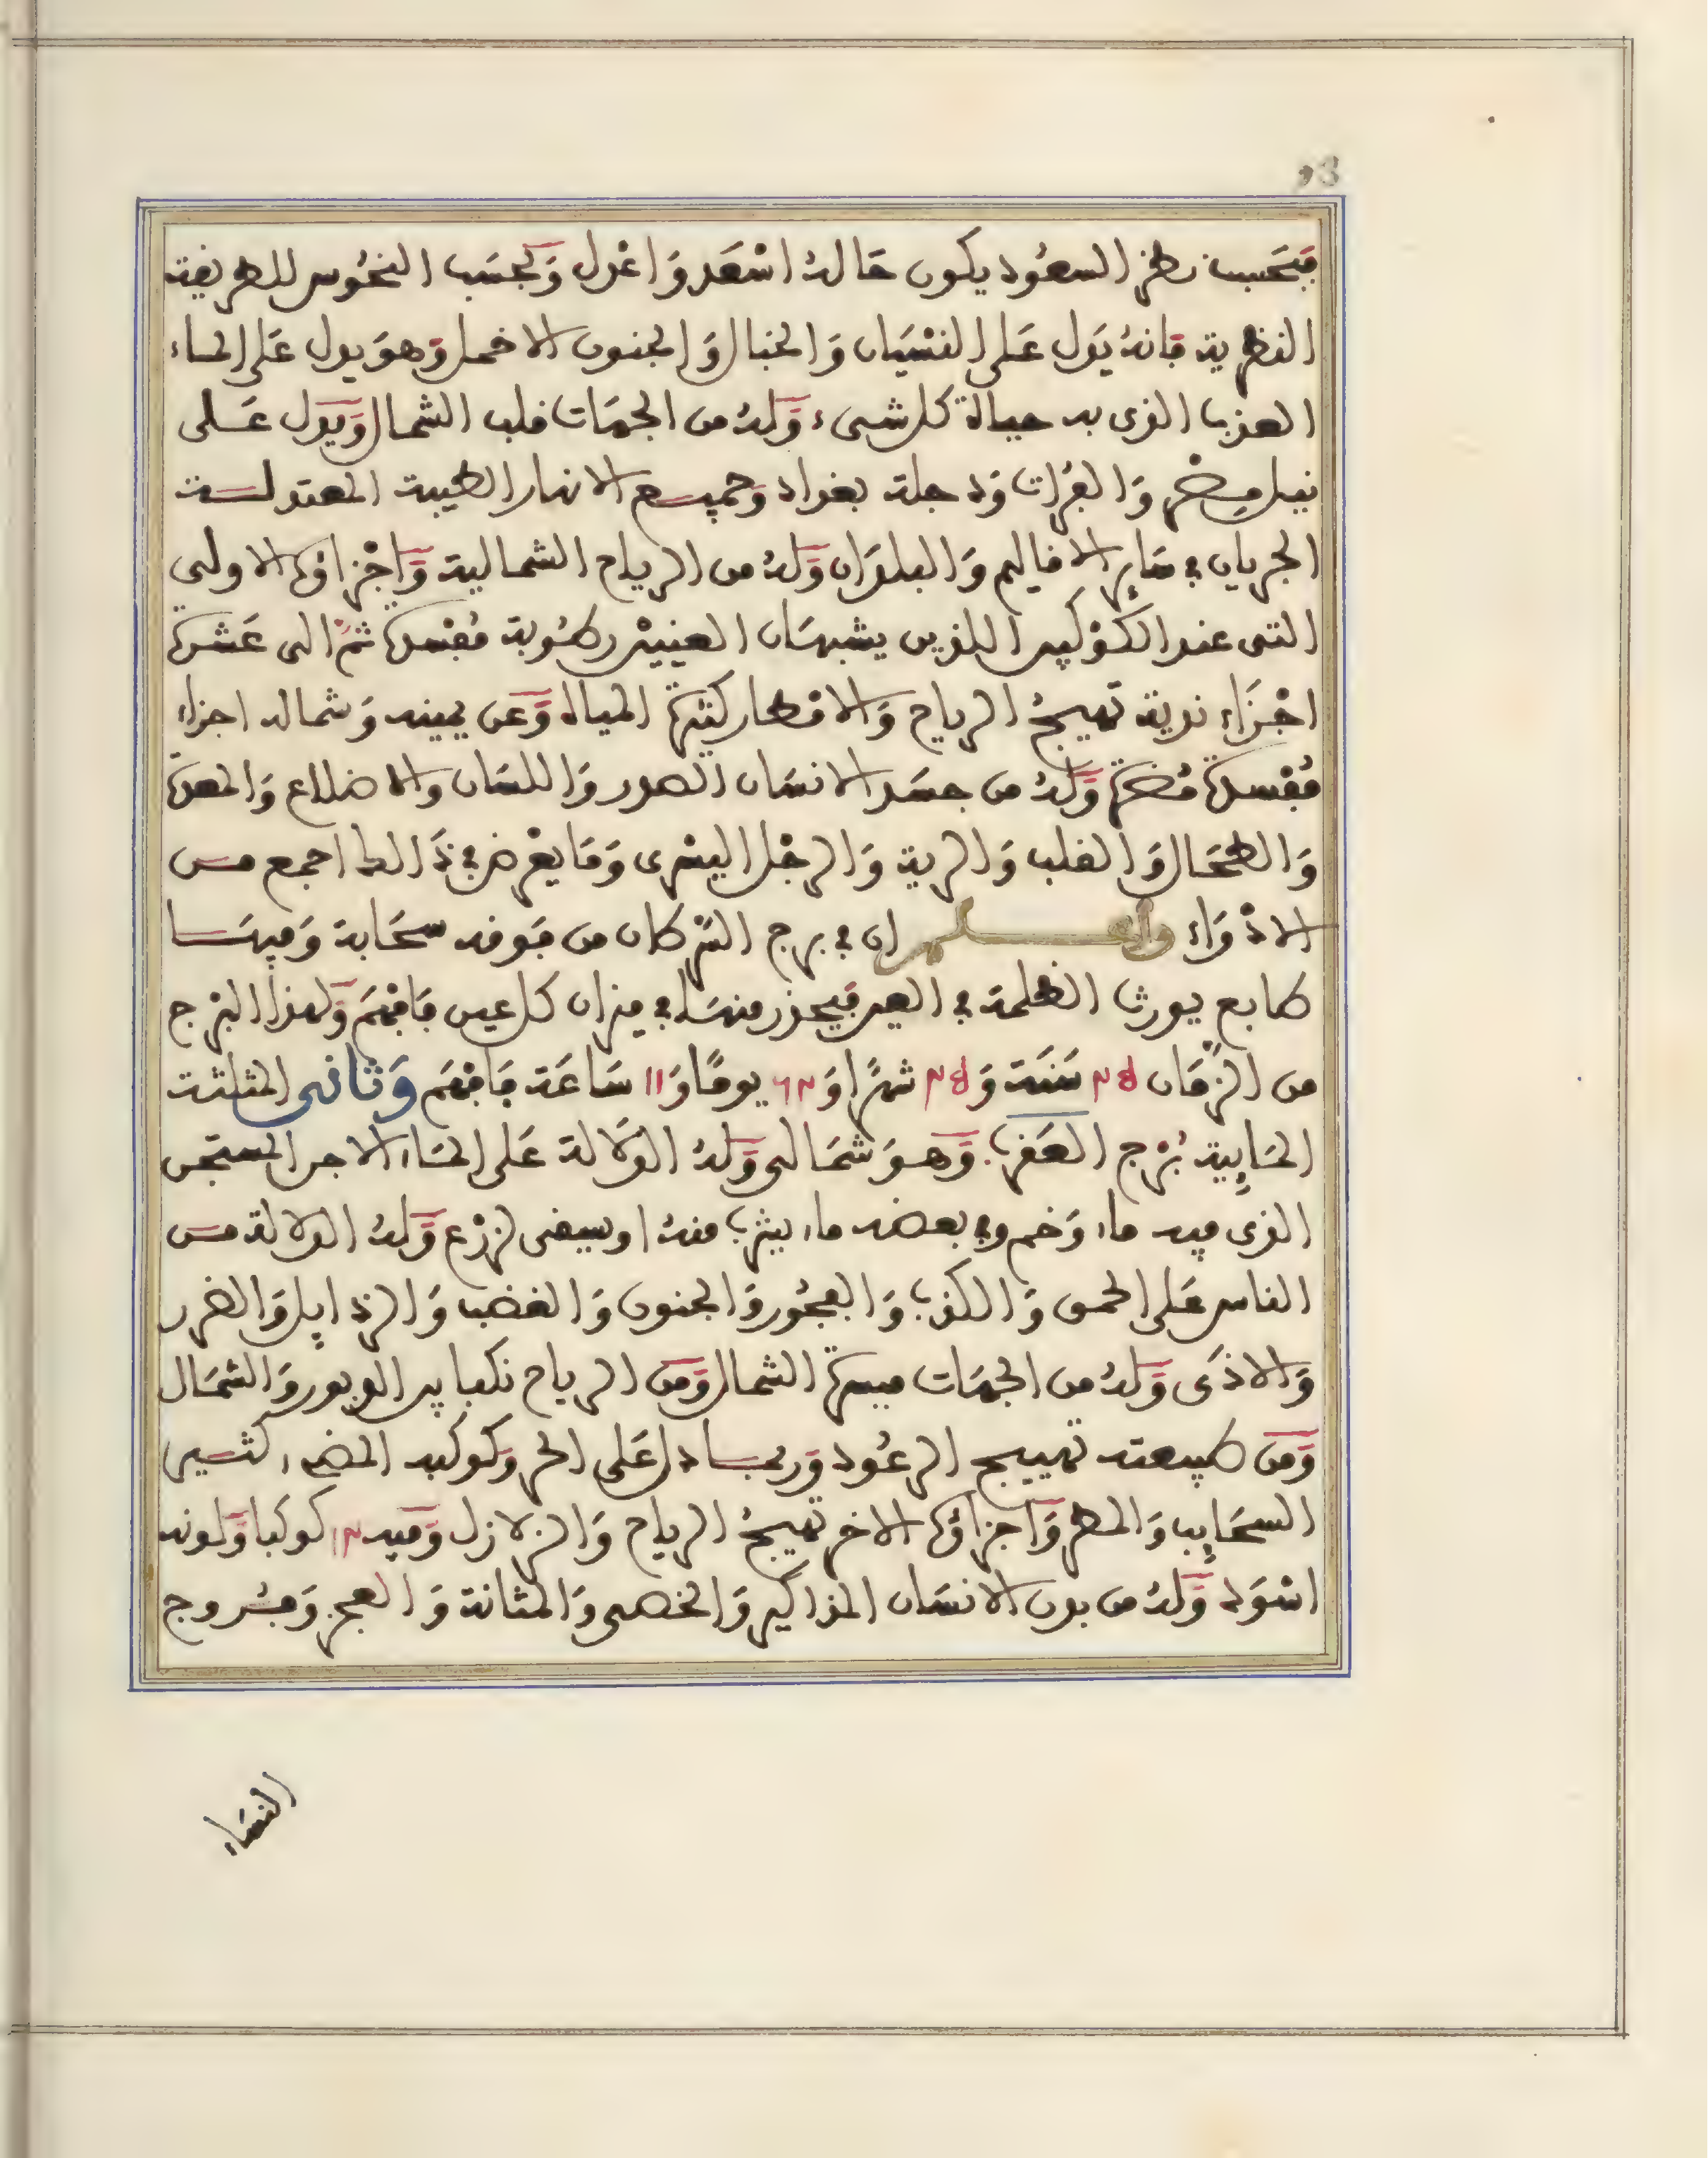 93
فبحسب نظر السعود يكون حاله اسعد واعدل وبحسب النحوس للطريفة
النظرية فانه يدل على النسيان والخبال والجنون الاخمل وهو يدل على الماء
العذب الذى به حياة كل شىء وله من الجهات قلب الشمال ويدل على
نيل مصر والفرات ودجلة بغداد وجميع الانهار الطيبة المعتدلة
الجريان في ساير الاقاليم والبلدان وله من الرياح الشمالية واجزاؤه الاولى
التى عند الكوكبين اللذين يشبهان العينين رطوبة مفسدة ثم الى عشرة
اجزاء ندية تهيج الرياح والامطار كثيرة المياه وعن يمينه وشماله اجزاء
مفسدة مضرة وله من جسد الانسان الصدر واللسان والاضلاع والمعدة
والطحال والقلب والرية والرجل اليسرى وما يعرض في ذالك اجمع من
الادواء واعلم ان في برج السرطان من فوقه سحابة وفيها
طابع يورث الظلمة في العين فيحذر منها في ميزان كل عين فافهم ولهذا البرج
من الزمان سنة و شهرا و يوما و11 ساعة فافهم وثانى المثلثة
المايية برج العقرب وهو شمالى وله الدلالة على الماء الاجر المستجن
الذى فيه ماء وخم وفي بعضه ماء يشرب منه او يسقى لزرع وله الدلالة من
الناس على الحمق والكذب والفجور والجنون والغضب والرذايل والضرر
والاذى وله من الجهات ميسرة الشمال ومن الرياح نكبا بين الدبور والشمال
ومن طبيعته تهييج الرعود وربما دل على الحر وكوكبه المضىء كثير
السحايب والمطر واجزاؤه الاخر تهيج الرياح والزلازل وفيه كوكبا ولونه
اسود وله من بدن الانسان المذاكير والخصى والمثانة والعجز وفروج
النساء